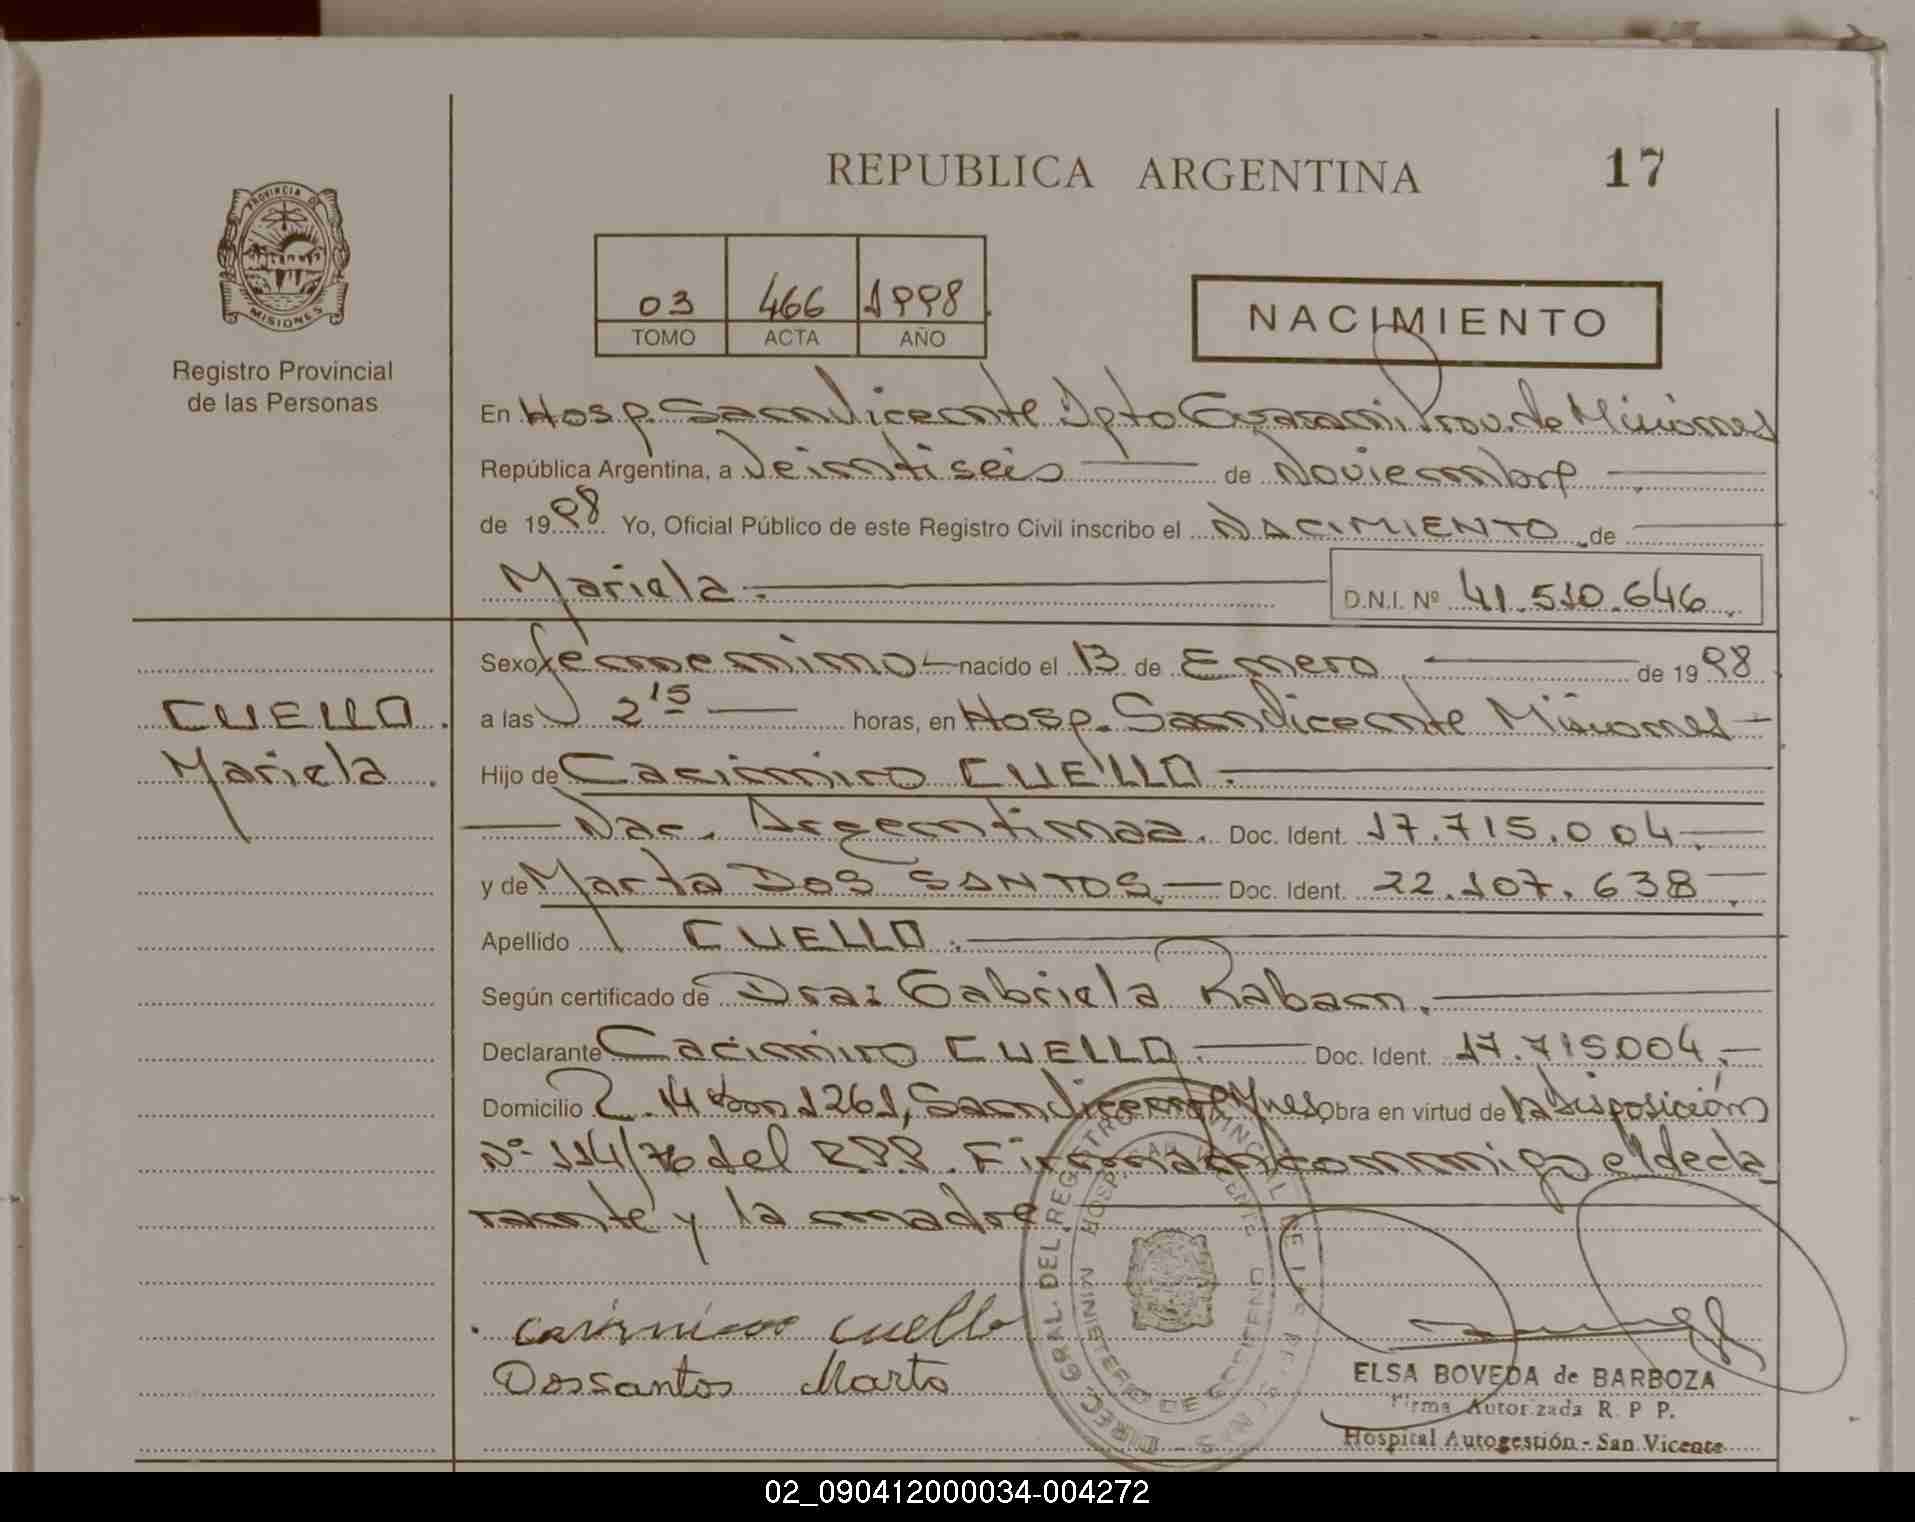 REPUBLICA ARGENTINA
17
PROVINCIA DE
MISIONES
Registro Provincial
de las Personas
03 466 1998
TOMO ACTA AÑO
NACIMIENTO
En Hosp. San Vicente Dpto Guarani Prov. de Misiones
República Argentina, a Veintiseis de Noviembre
de 1998 Yo, Oficial Público de este Registro Civil inscribo el NACIMIENTO de
Mariela. D.N.I. Nº 41.510.646.
Sexo femenino nacido el 13 de Enero de 1998
CUELLO.
a las 2 15 horas, en Hosp. San Vicente Misiones
Mariela.
Hijo de Casimiro CUELLO.
Nac. Argentinaa. Doc. Ident. 17.715.004
y de Marta DOS SANTOS. Doc. Ident. 22.107.638
Apellido CUELLO.
Según certificado de Dra: Gabriela Raban.
Declarante Casimiro CUELLO. Doc. Ident. 17.715004.
Domicilio 1261, San Vicente Mnes, Obra en virtud de la disposición
Nº 114/76 del R.P.P. Firman conmigo el decla
rante y la madre
DIREC. GRAL. DEL REGISTRO PROVINCIAL DE LAS
HOSP. SAN VICENTE
MINISTERIO DE GOBIERNO
casimiro cuello
Dossantos Marta
ELSA BOVEDA de BARBOZA
Firma Autorizada R. P. P.
Hospital Autogestión - San Vicente
02_090412000034-004272